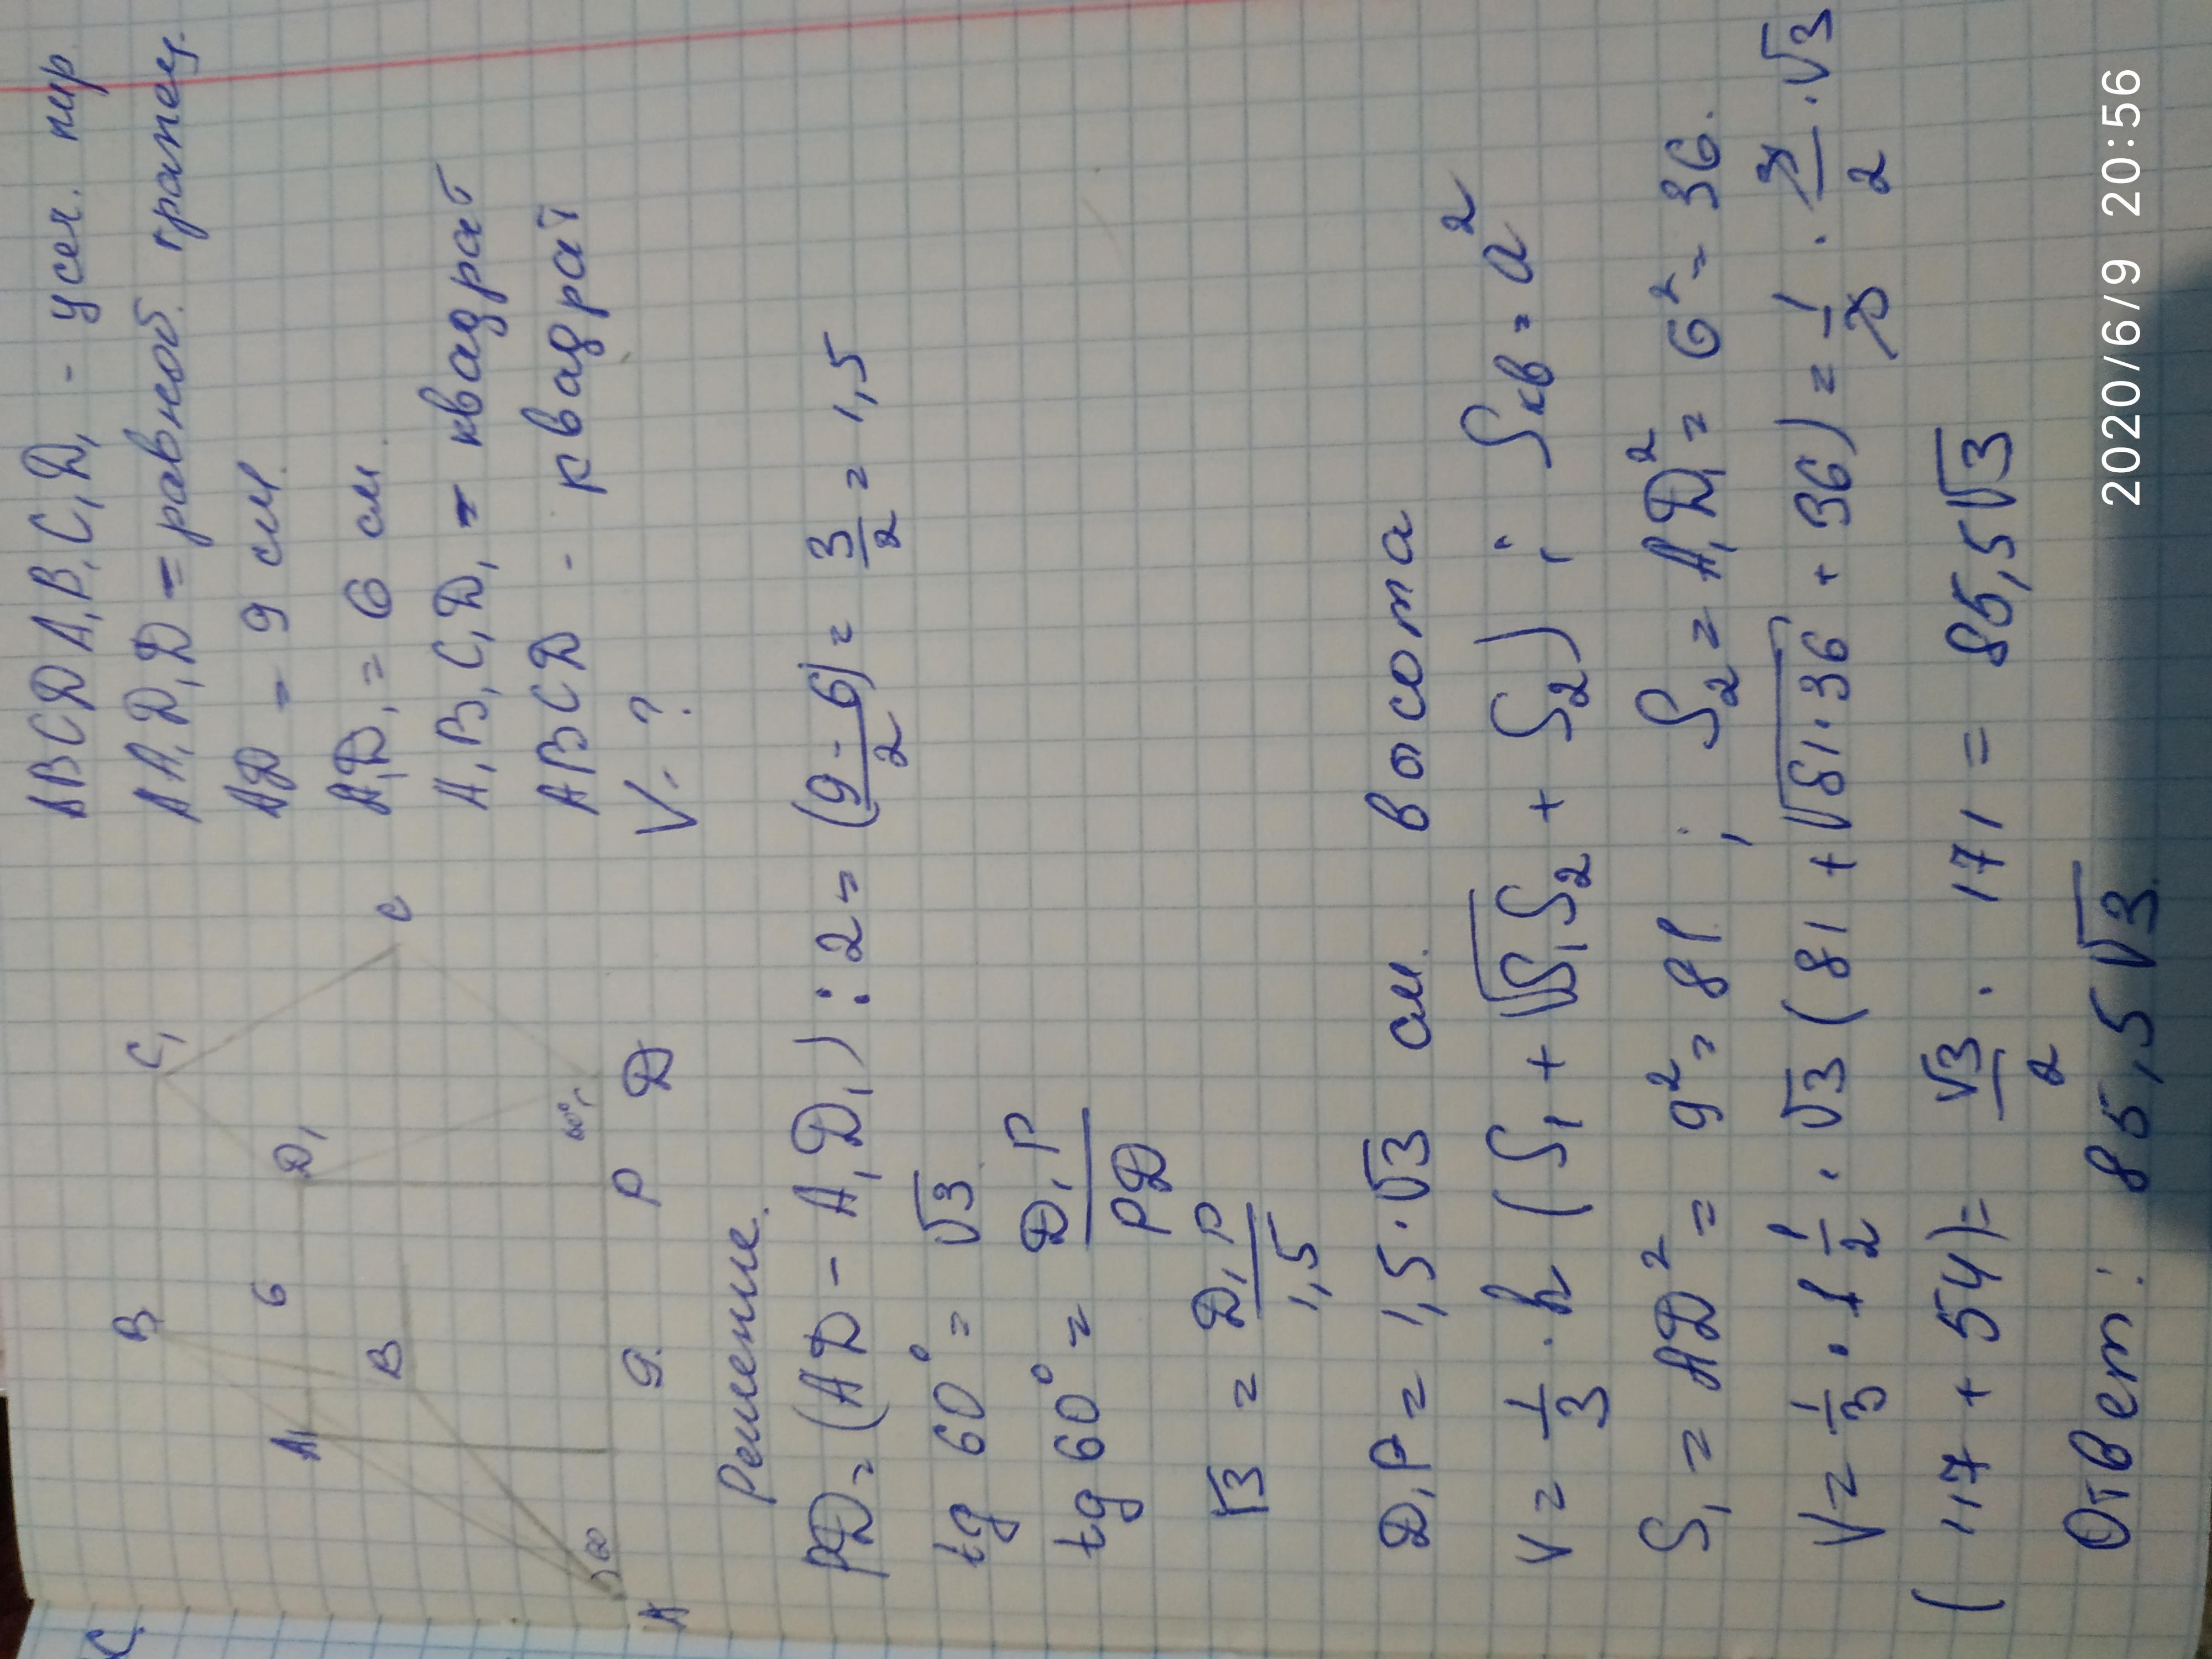 ABCDA₁B₁C₁D₁ - усеч. пир
AA₁D₁D = равноб. трапец.
AD = 9 см.
A₁D₁ = 6 см.
A₁B₁C₁D₁ = квадрат
ABCD - квадрат
V - ?
B₁
C₁
A₁
6
D₁
B
C
60°
A
9.
P
D
Решение.
PD = (AD - A₁D₁) : 2 = (9 - 6)/2 = 3/2 = 1,5
tg 60° = √3
tg 60° = D₁P/PD
√3 = D₁P/1,5
D₁P = 1,5 · √3 см. восота
V = 1/3 · h (S₁ + √S₁S₂ + S₂) ; Sкв = a²
S₁ = AD² = 9² = 81 ; S₂ = A₁D₁² = 6² = 36.
V = 1/3 · 1 1/2 · √3 (81 + √81·36 + 36) = 1/3 · 3/2 · √3
(117 + 54) = √3/2 · 171 = 85,5√3
Ответ: 85,5√3.
2020/6/9 20:56